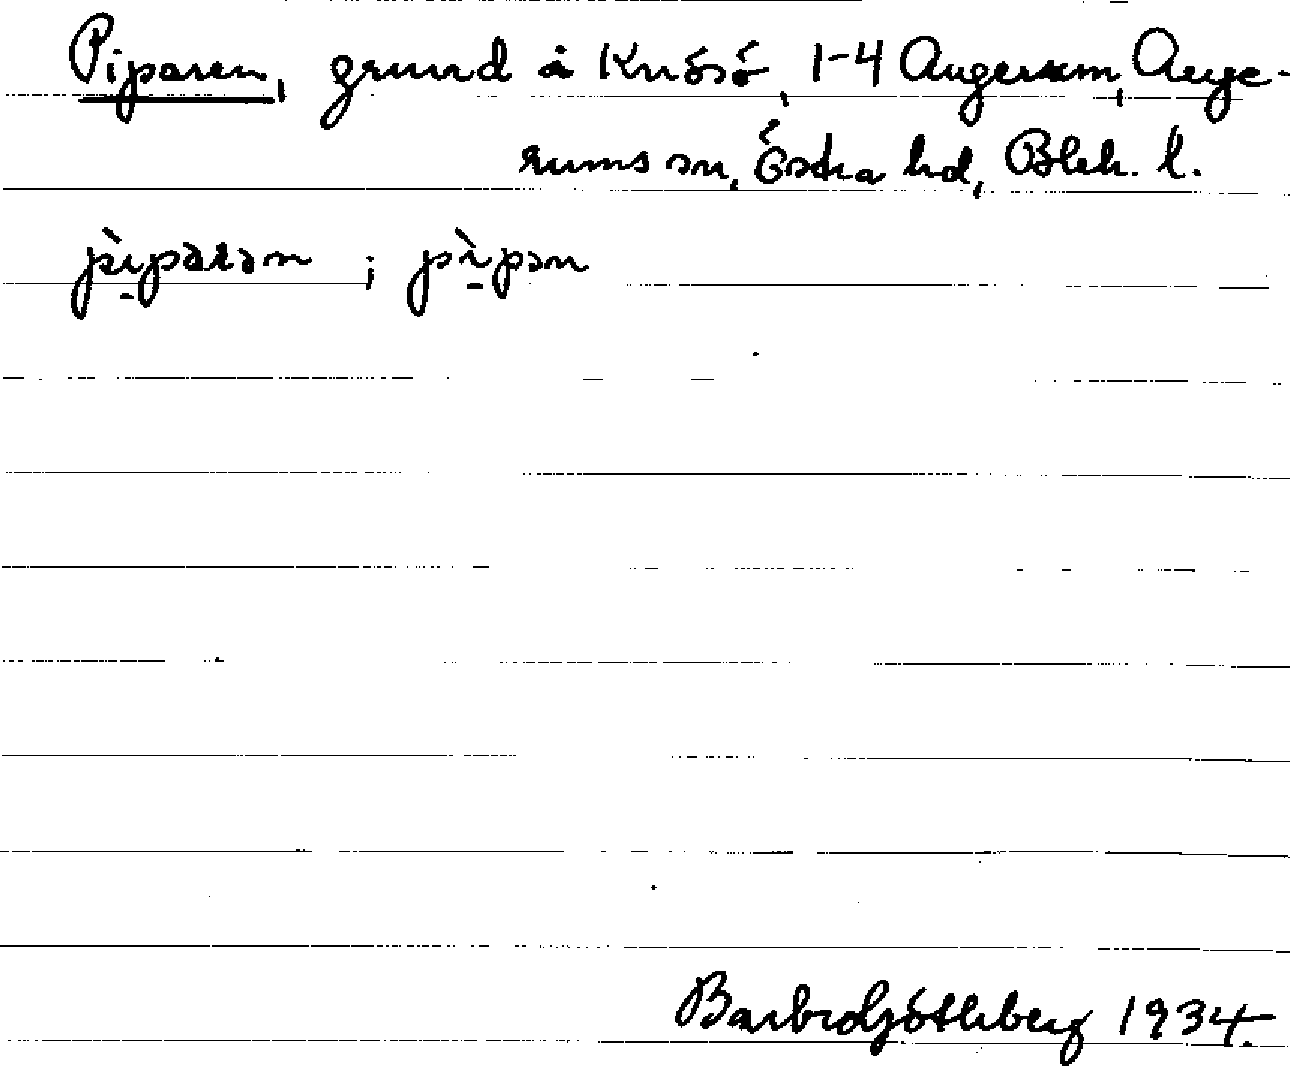 Piparen, grund å Knösö, 1-4 Augerum, Auge-
rums sn, Östra hd, Blek. l.
pìpaʀən ; pìpən
Barbro Götleberg 1934.